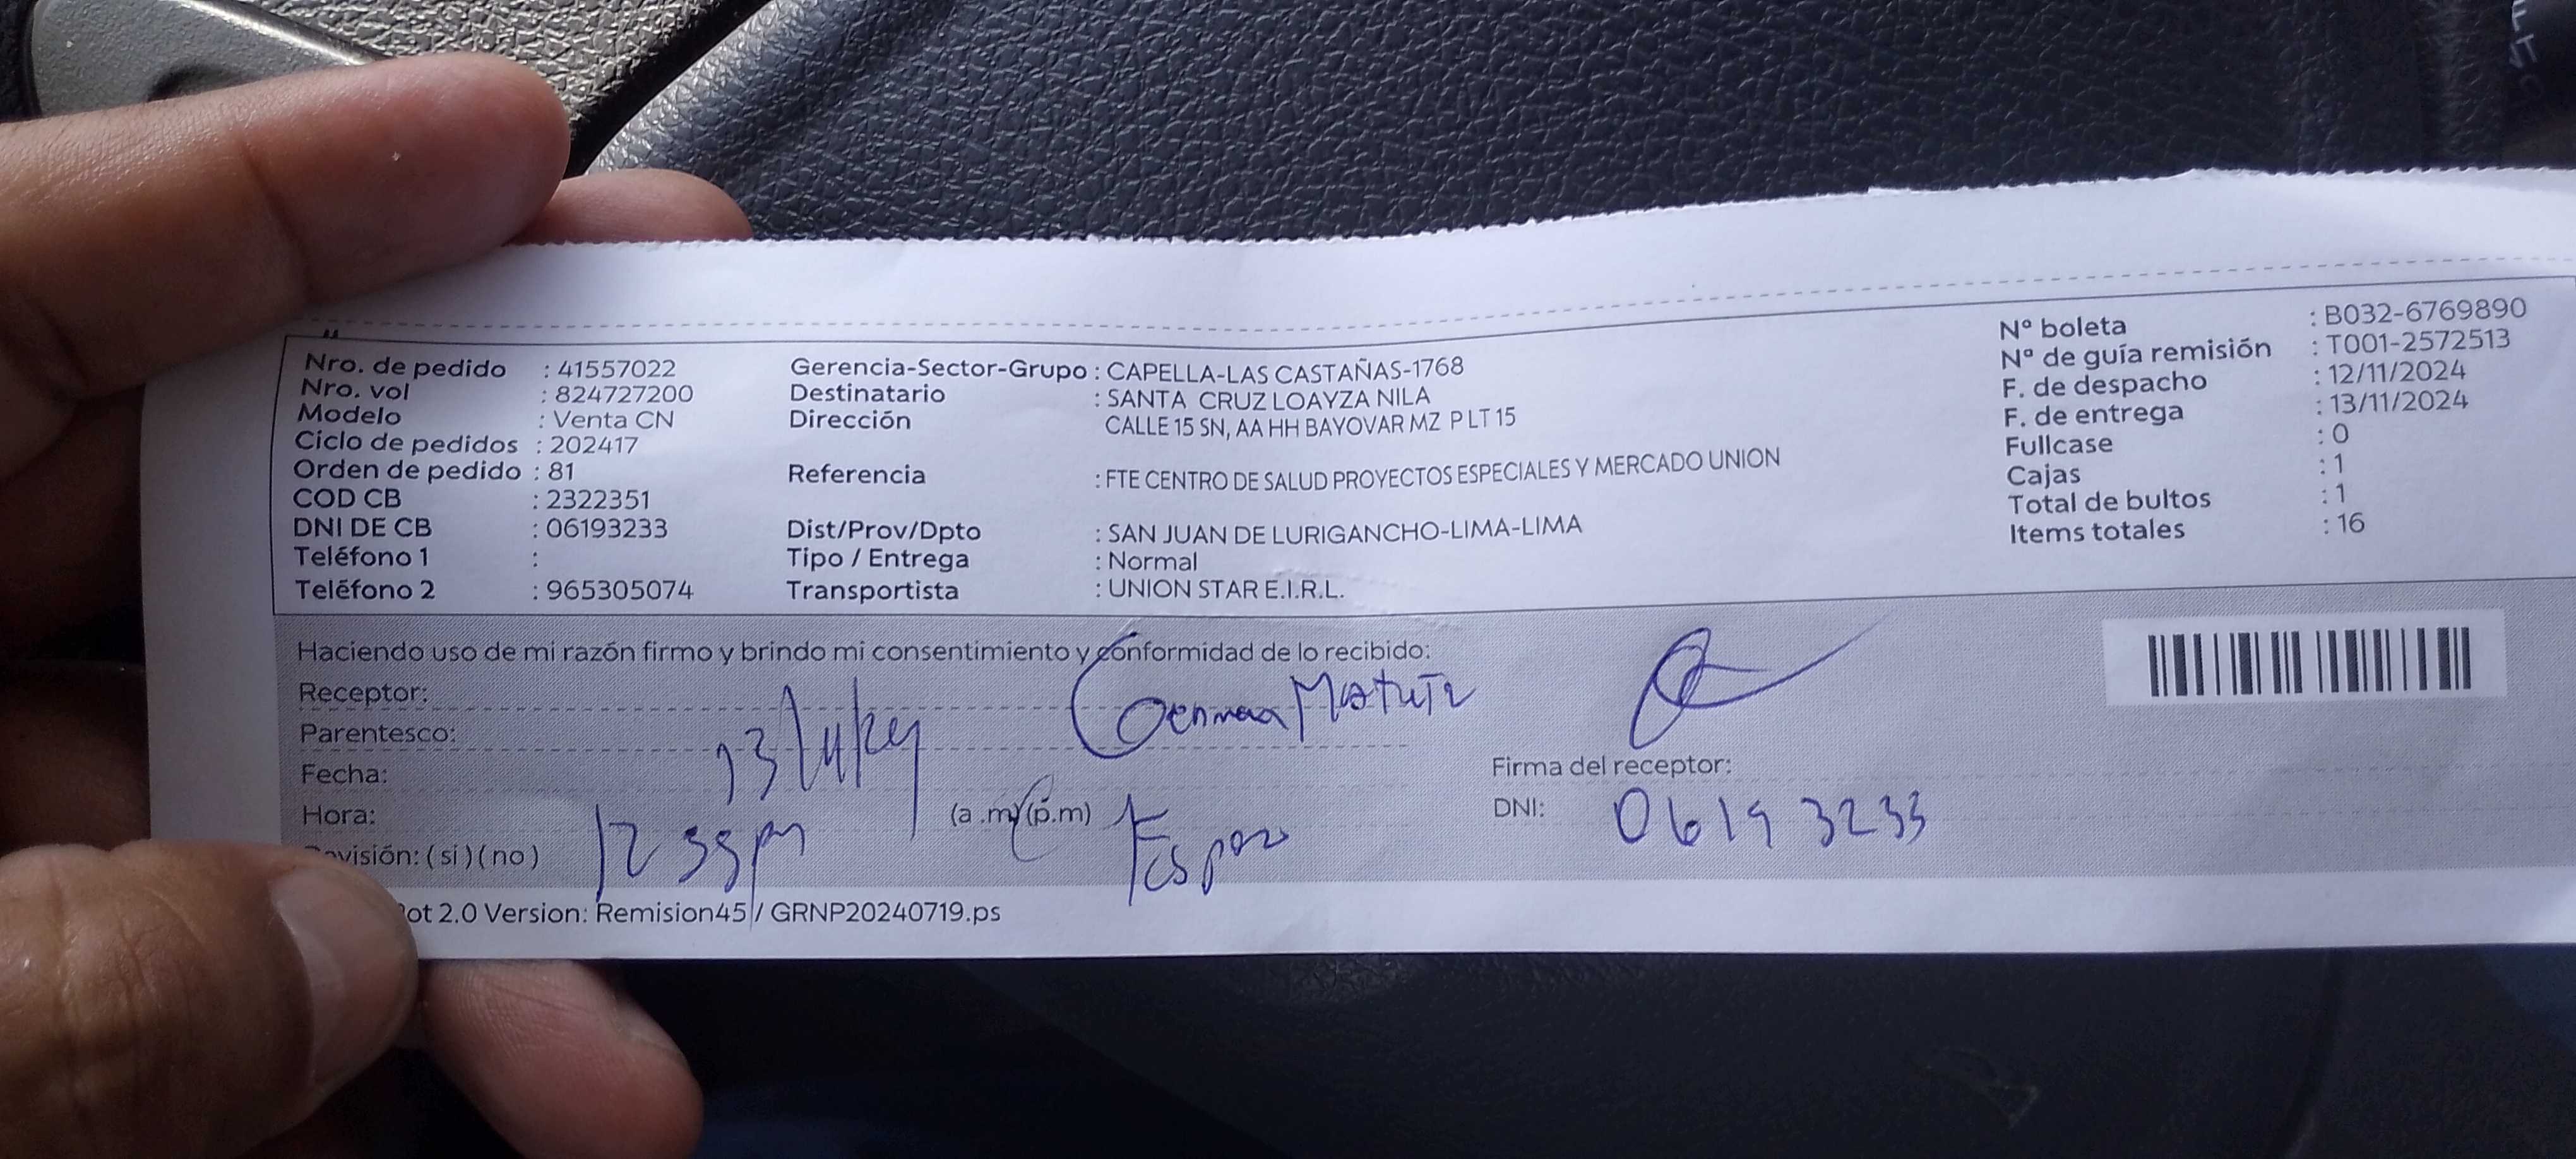 Nro. de pedido : 41557022
Nro. vol : 824727200
Modelo : Venta CN
Ciclo de pedidos : 202417
Orden de pedido : 81
COD CB : 2322351
DNI DE CB : 06193233
Teléfono 1 :
Teléfono 2 : 965305074
Gerencia-Sector-Grupo : CAPELLA-LAS CASTAÑAS-1768
Destinatario : SANTA CRUZ LOAYZA NILA
Dirección CALLE 15 SN, AA HH BAYOVAR MZ P LT 15
Referencia : FTE CENTRO DE SALUD PROYECTOS ESPECIALES Y MERCADO UNION
Dist/Prov/Dpto : SAN JUAN DE LURIGANCHO-LIMA-LIMA
Tipo / Entrega : Normal
Transportista : UNION STAR E.I.R.L.
Nº boleta : B032-6769890
Nº de guía remisión : T001-2572513
F. de despacho : 12/11/2024
F. de entrega : 13/11/2024
Fullcase : 0
Cajas : 1
Total de bultos : 1
Items totales : 16
Haciendo uso de mi razón firmo y brindo mi consentimiento y conformidad de lo recibido:
Receptor:
Parentesco:
Fecha:
Hora: (a.m)(p.m)
visión: (si)(no)
Firma del receptor:
DNI: 06193233
ot 2.0 Version: Remision45 / GRNP20240719.ps